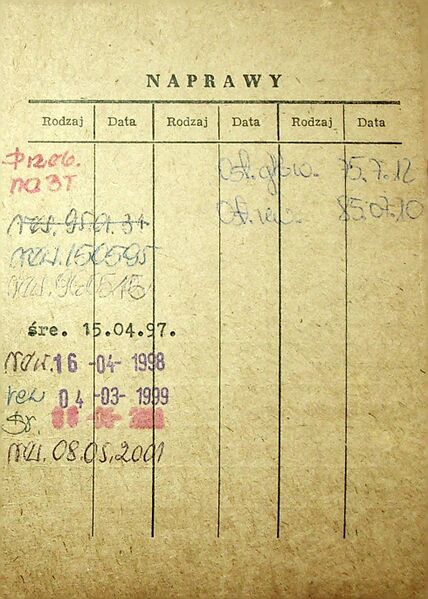 NAPRAWY
Rodzaj Data Rodzaj Data Rodzaj Data
Przeb.
na 3T
75.7.12
85.07.10
rew. 150595
rew. 960515
śre. 15.04.97.
rew. 16 -04- 1998
rew 04 -03- 1999
śr.
rew. 08.05.2001